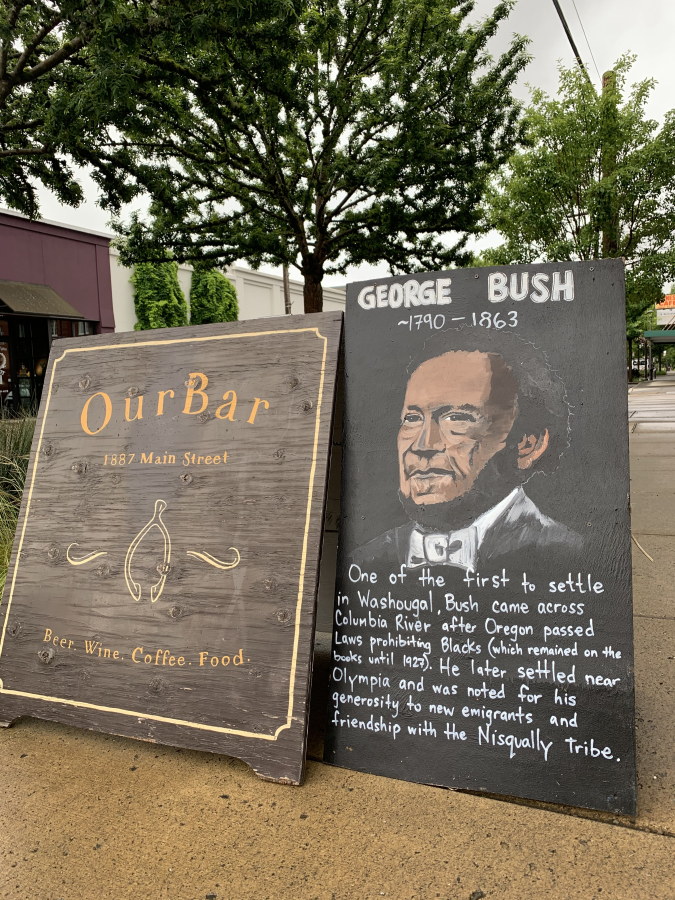 OurBar
1887 Main Street
Beer. Wine. Coffee. Food.
GEORGE BUSH
~1790 - 1863
One of the first to settle
in Washougal, Bush came across
Columbia River after Oregon passed
Laws prohibiting Blacks (which remained on the
books until 1927). He later settled near
Olympia and was noted for his
generosity to new emigrants and
friendship with the Nisqually Tribe.